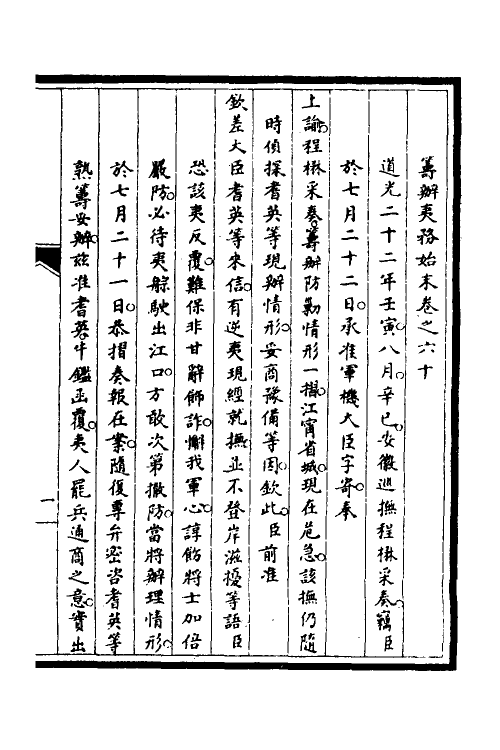 籌辦夷務始末卷之六十
道光二十二年壬寅八月辛巳安徽巡撫程楙采奏竊臣
於七月二十二日承准軍機大臣字寄奉
上諭程楙采奏籌辦防勦情形一摺江甯省城現在危急該撫仍隨
時偵探耆英等現辦情形妥商豫備等因欽此臣前准
欽差大臣耆英等來信有逆夷現經就撫並不登岸滋擾等語臣
恐該夷反覆難保非甘辭飾詐懈我軍心諄飭將士加倍
嚴防必待夷䑸駛出江口方敢次第撤防當將辦理情形
於七月二十一日恭摺奏報在案隨復專弁密咨耆英等
熟籌妥辦茲准耆英牛鑑函覆夷人罷兵通商之意實出
一